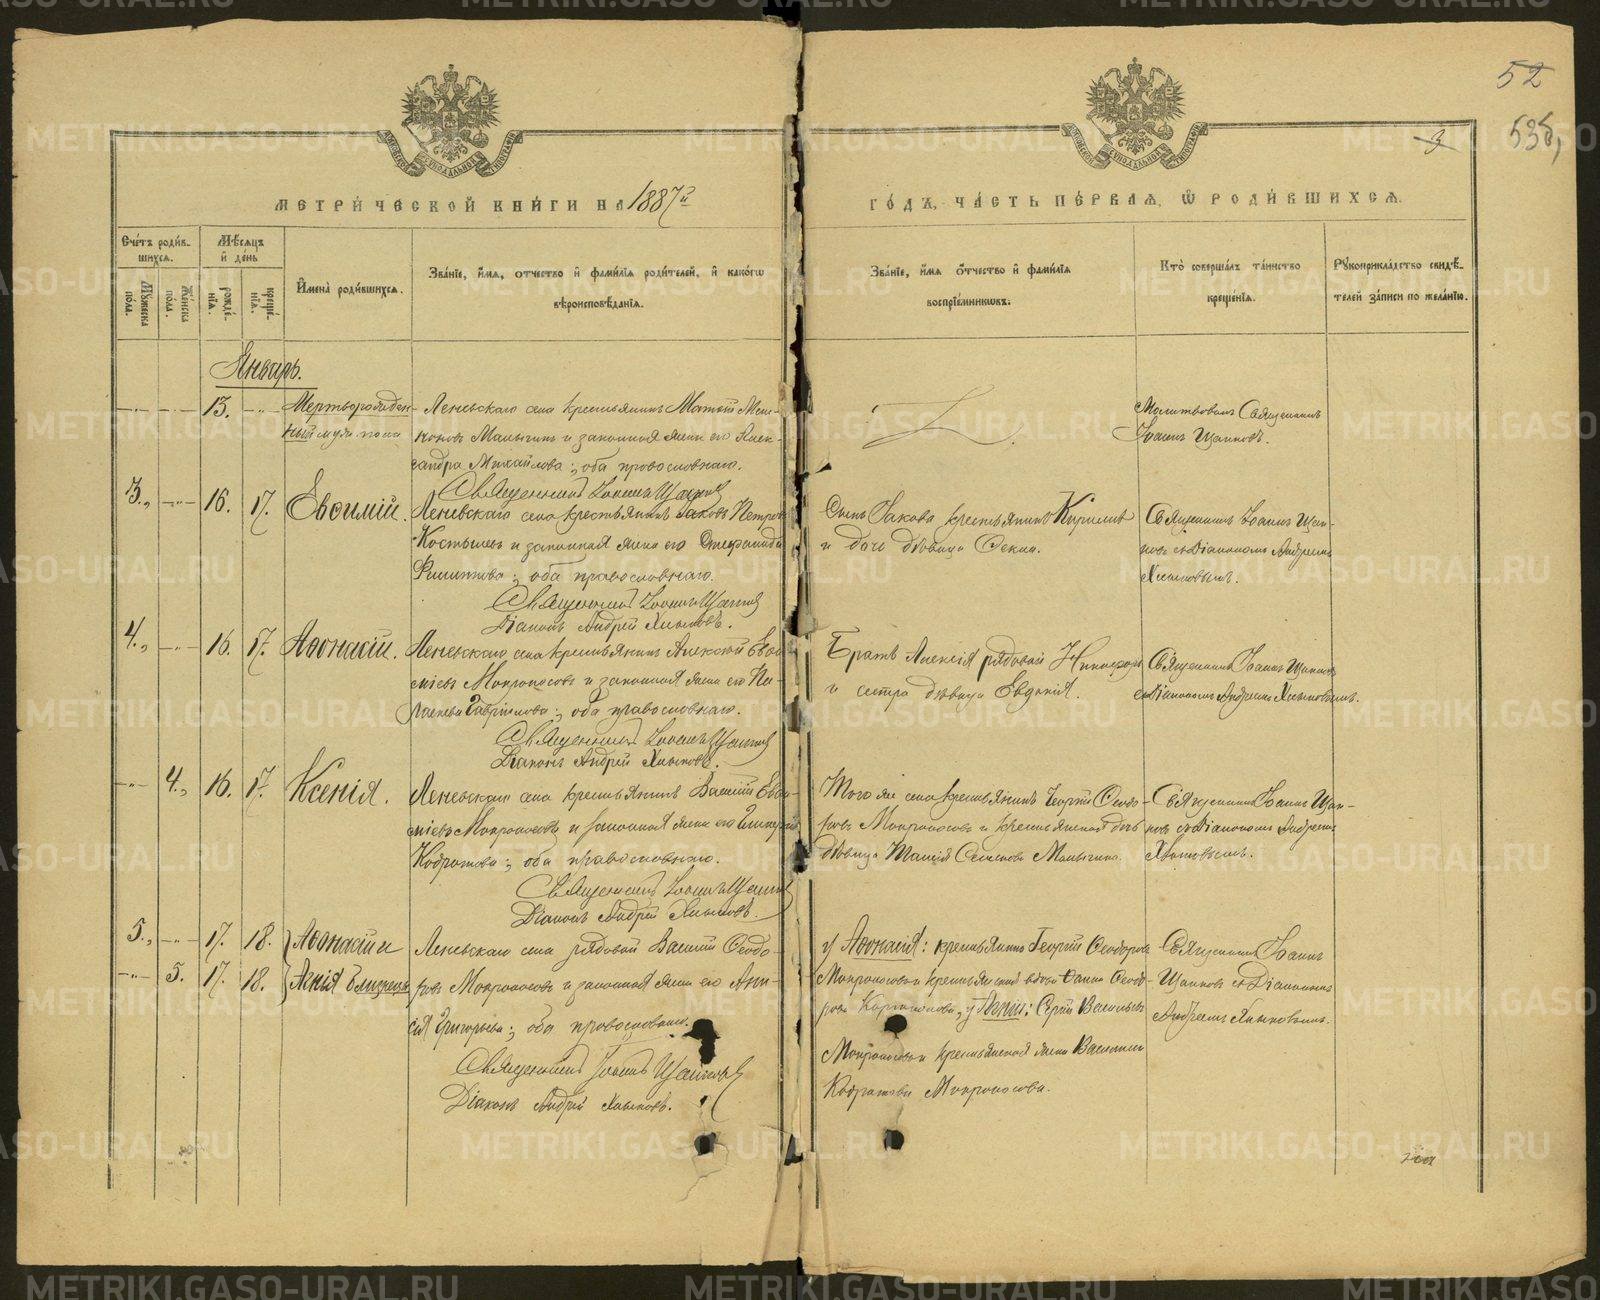 52
535,
3
МЕТРИЧЕСКОЙ КНИГИ НА 1887 й
ГОДЪ, ЧАСТЬ ПЕРВАЯ, Ѿ РОДИВШИХСЯ.
Счетъ родив-
шихся.
Мужеска пола.
Женска пола.
Мѣсяцъ и день
рожде-
нія.
креще-
нія.
Имена родившихся.
Званіе, имя, отчество и фамилія родителей, и какогѡ
вѣроисповѣданія.
Званіе, имя отчество и фамилія
воспріѣмниковъ.
Кто совершалъ таинство
крещенія.
Рукоприкладство свидѣ-
телей записи по желанію.
Январь.
13. Мертворожден-
ный муж. пола
Леневскаго села крестьянинъ
Малыгинъ и законная жена его Алек-
сандра Михайлова; оба православнаго.
Священникъ Іоаннъ Щапковъ
Молитвовалъ Священникъ
Іоаннъ Щапковъ.
3., 16. 17. Евѳимій.
Леневскаго села крестьянинъ Іаковъ Петровъ
Костылевъ и законная жена его Стефанида
Филиппова; оба православнаго.
Священникъ Іоаннъ Щапковъ
Діаконъ Андрей Хлыновъ.
Сынъ Іакова крестьянинъ Кириллъ
и дочь дѣвица Ѳекла.
Священникъ Іоаннъ Щап-
ковъ съ Діакономъ Андреемъ
Хлыновымъ.
4., 16. 17. Аѳонасій.
Леневскаго села крестьянинъ Алексій Евѳи-
міевъ Мокроносовъ и законная жена его Па-
раскева Гавріилова; оба православнаго.
Священникъ Іоаннъ Щапковъ
Діаконъ Андрей Хлыновъ.
Братъ Алексія рядовой Никифоръ
и сестра дѣвица Евдокія.
Священникъ Іоаннъ Щапковъ
съ Діакономъ Андреемъ Хлыновымъ.
4., 16. 17. Ксенія.
Леневскаго села крестьянинъ Василій Евѳи-
міевъ Мокроносовъ и законная жена его Гликерія
Кодратова; оба православнаго.
Священникъ Іоаннъ Щапковъ
Діаконъ Андрей Хлыновъ.
Того же села крестьянинъ Георгій Ѳеодо-
ровъ Мокроносовъ и крестьянская дочь
дѣвица Таисія Семенова Малыгина.
Священникъ Іоаннъ Щап-
ковъ съ Діакономъ Андреемъ
Хлыновымъ.
5., 17. 18. Аѳонасій и
5. 17. 18. Агнія Близнецы
Леневскаго села рядовой Василій Ѳеодо-
ровъ Мокроносовъ и законная жена его Ани-
сія Григорьева; оба православнаго.
Священникъ Іоаннъ Щапковъ
Діаконъ Андрей Хлыновъ.
у Аѳонасія: крестьянинъ Георгій Ѳеодоровъ
Мокроносовъ и крестьянская вдова Ѳеодо-
рова у Агніи: Сергій Васильевъ
Мокроносовъ и крестьянская жена Василиса
Кодратова Мокроносова.
Священникъ Іоаннъ
Щапковъ съ Діакономъ
Андреемъ Хлыновымъ.
METRIKI.GASO-URAL.RU